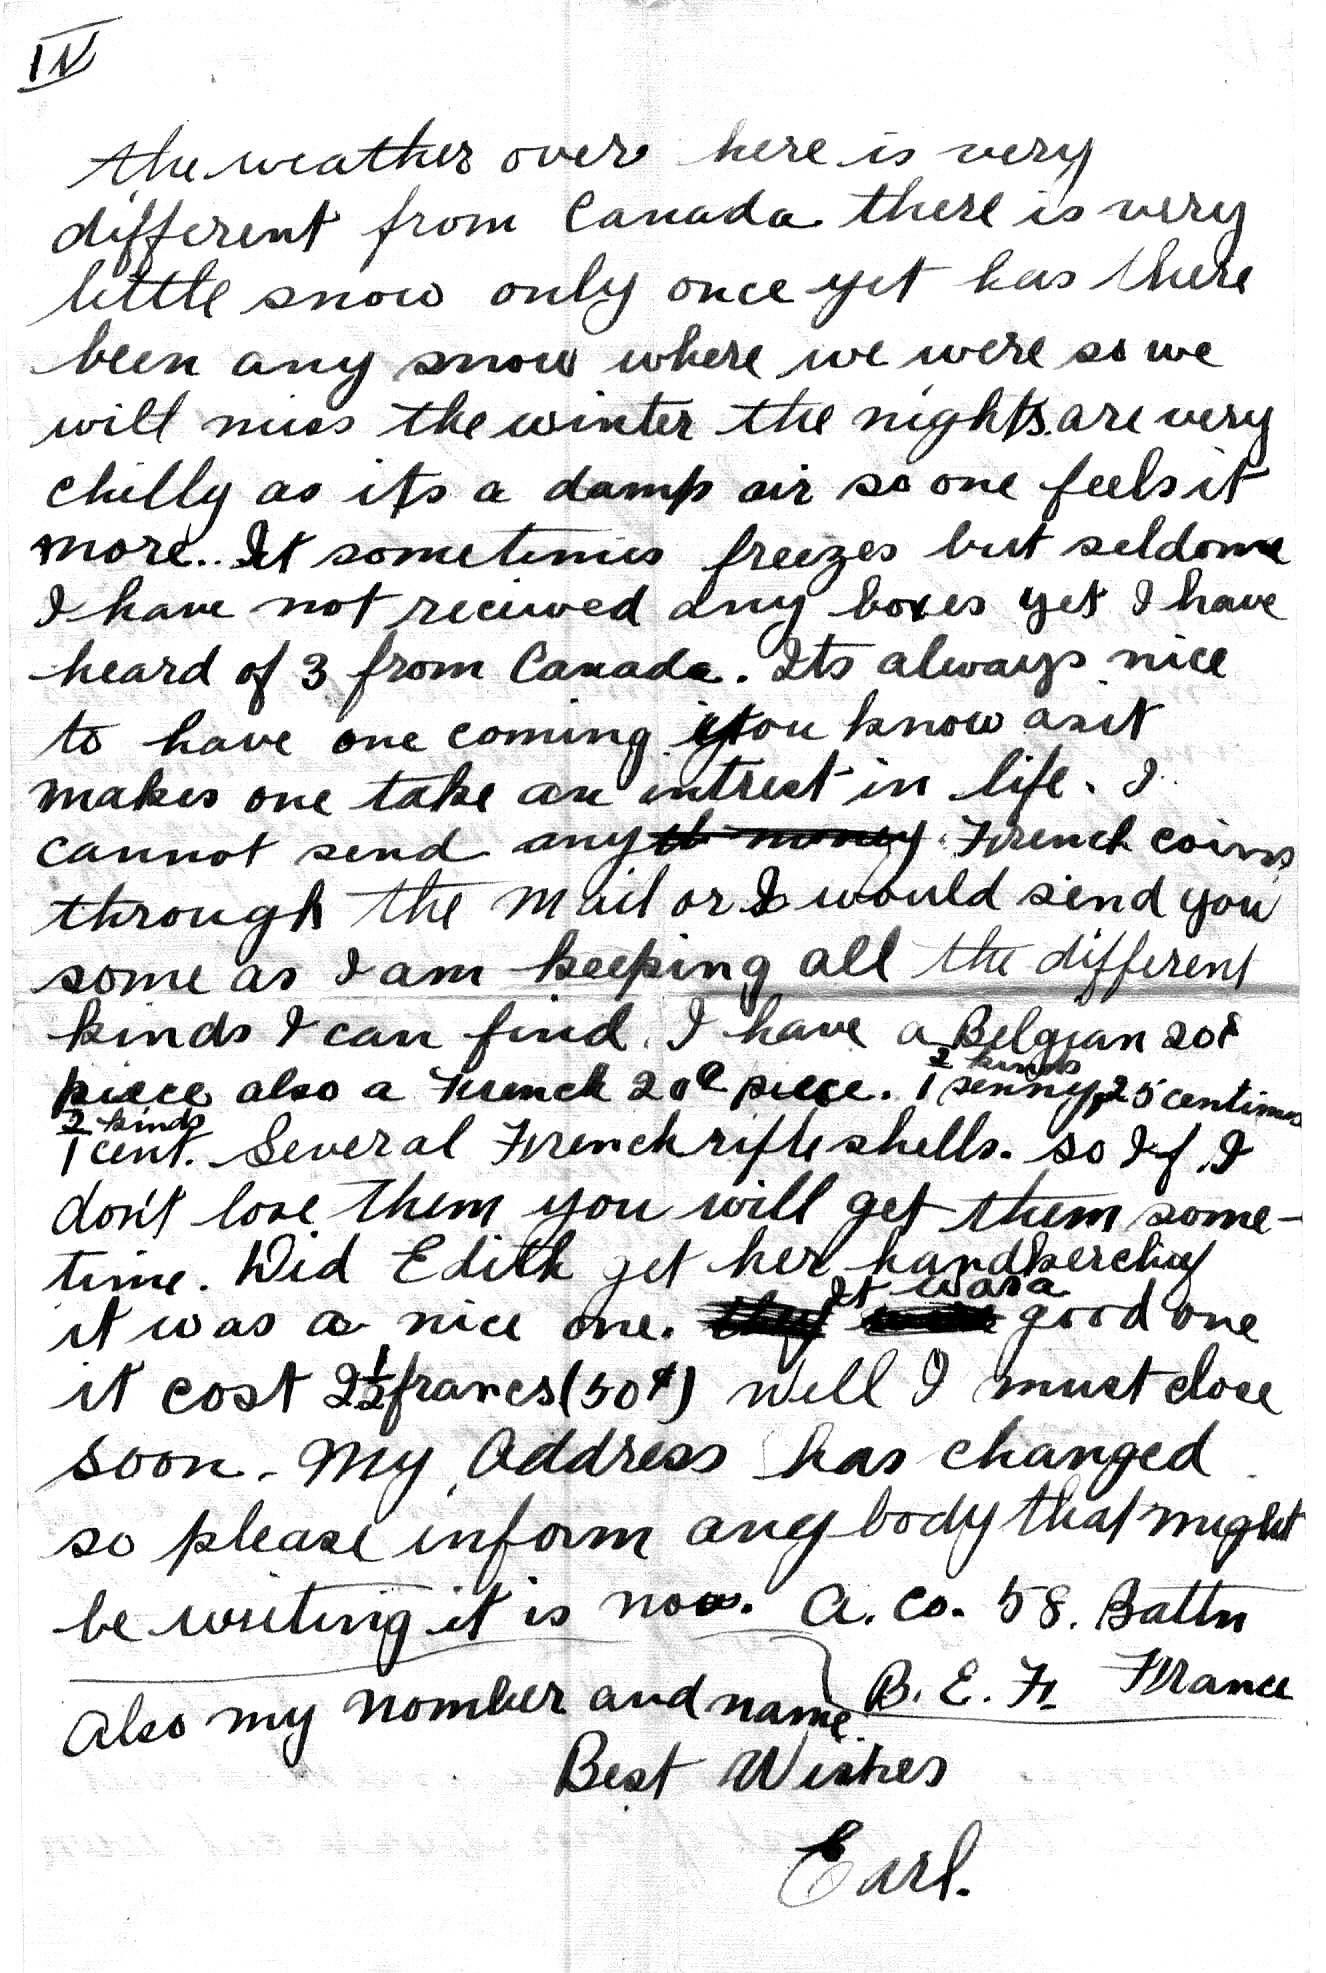 IV
the weather over here is very
different from Canada there is very
little snow only once yet has there
been any snow where we were so we
will miss the winter the nights are very
chilly as its a damp air so one feels it
more.. It sometimes freezes but seldome
I have not recieved any boxes yet I have
heard of 3 from Canada. Its always nice
to have one coming you know as it
makes one take an intrest in life. I
cannot send any th money French coins
through the mail or I would send you
some as I am keeping all the different
kinds I can find. I have a Belgian 20¢
2 kinds
piece also a French 20¢ piece. 1 penny, 25 centimes
2 kinds
1 cent. Several French rifle shells. so If I
don't lose them you will get them some-
time. Did Edith get her handkerchief
It was a
it was a nice one. they were good one
it cost 2½ francs (50¢) well I must close
soon. My Address has changed
so please inform any body that might
be writing it is now. A. Co. 58. Battn
B. E. F. France
Also my nomber and name.
Best Wishes
Earl.